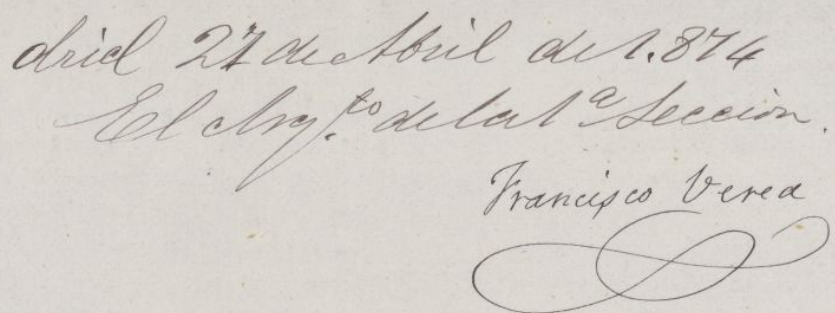 drid 27 de Abril de 1.874
El Arq.to de la 1ª Sección.
Francisco Verea